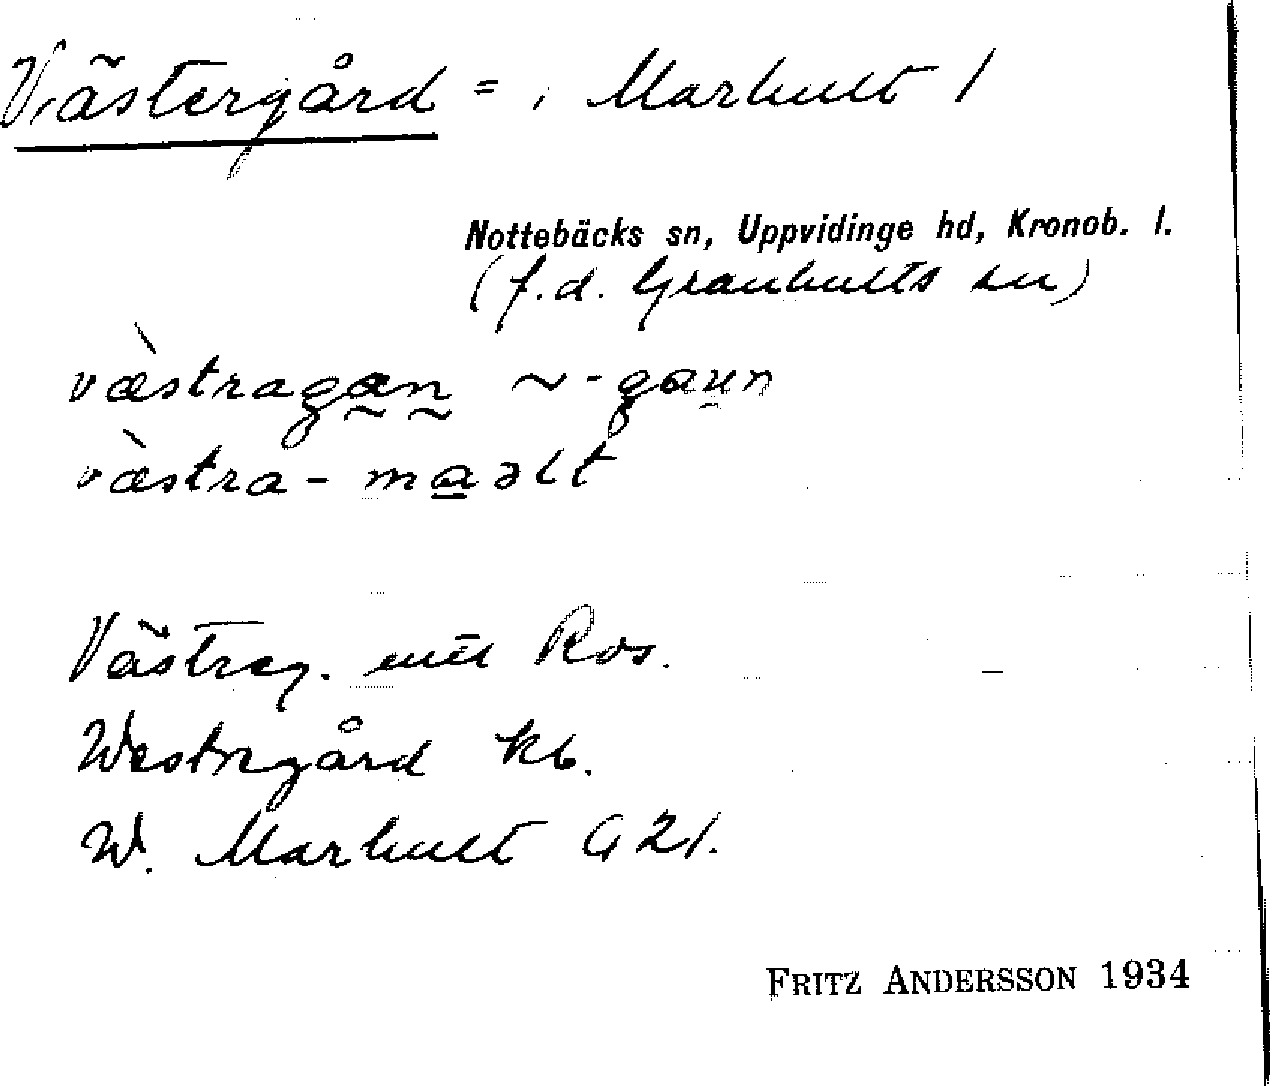 Västergård = i Marhult 1
Nottebäcks sn, Uppvidinge hd, Kronob. l.
(f.d. Granhults sn)
væ̀stragan ~ -gaun
væ̀stra- maəlt
Västreg. enl Ros.
Westregård kb.
W. Marhult G 21.
FRITZ ANDERSSON 1934